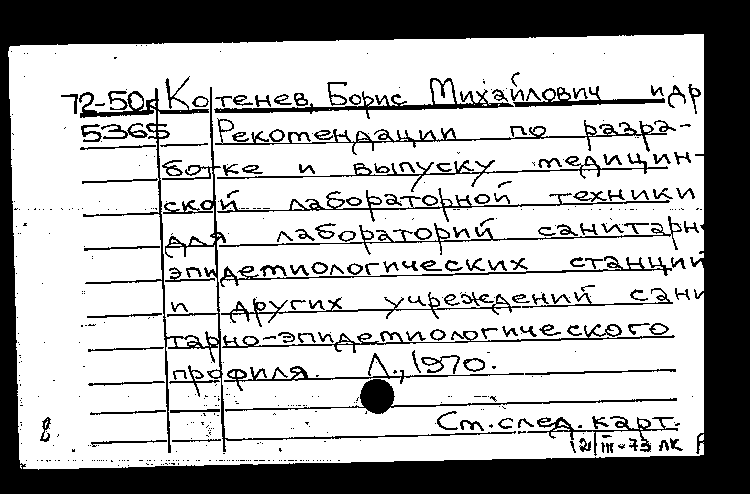 72-50к Котенев, Борис Михайлович и др
5365 Рекомендации по разра-
ботке и выпуску медицин-
ской лабораторной техники
для лабораторий санитарн
эпидемиологических станций
и других учреждений сани
тарно-эпидемиологического
профиля. Л., 1970.
См. след. карт.
2 III-73 ЛК